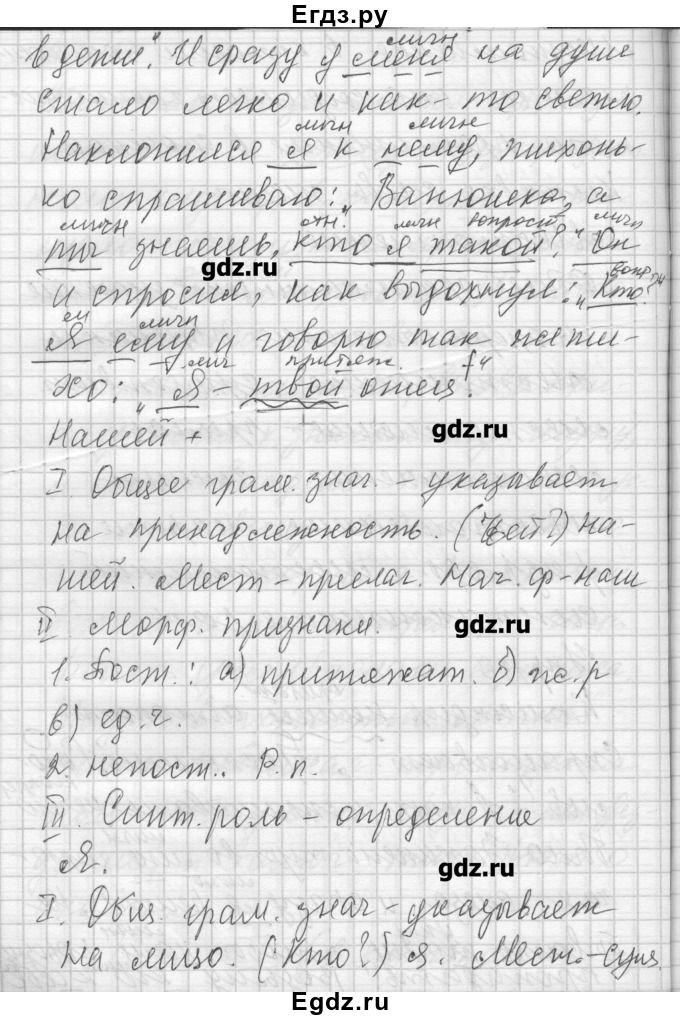 Егдз.ру
личн
в дети". И сразу у меня на душе
стало легко и как-то светло.
личн личн
Наклонился я к нему, тихонь-
ко спрашиваю: "Ванюшка, а
личн отн. личн вопросит личн
ты знаешь, кто я такой?" Он
gdz.ru
вопр
и спросил, как выдохнул: "Кто?"
личн
Я ему и говорю так же ти-
лич притяж.
хо: "Я - твой отец!"
Нашей +
gdz.ru
I. Общее грам. знач. - указывает
на принадлежность. (Чей?) на-
шей. Мест-прилаг. Нач. ф-наш
II Морф. признаки.
gdz.ru
1. Пост.: а) притяжат. б) ж.р
в) ед.ч.
2. непост.. Р.п.
III. Синт. роль - определение
Я.
gdz.ru
I. Общ. грам. знач - указывает
на лицо. (Кто?) я. Мест.-сущ.
Egdz.ru